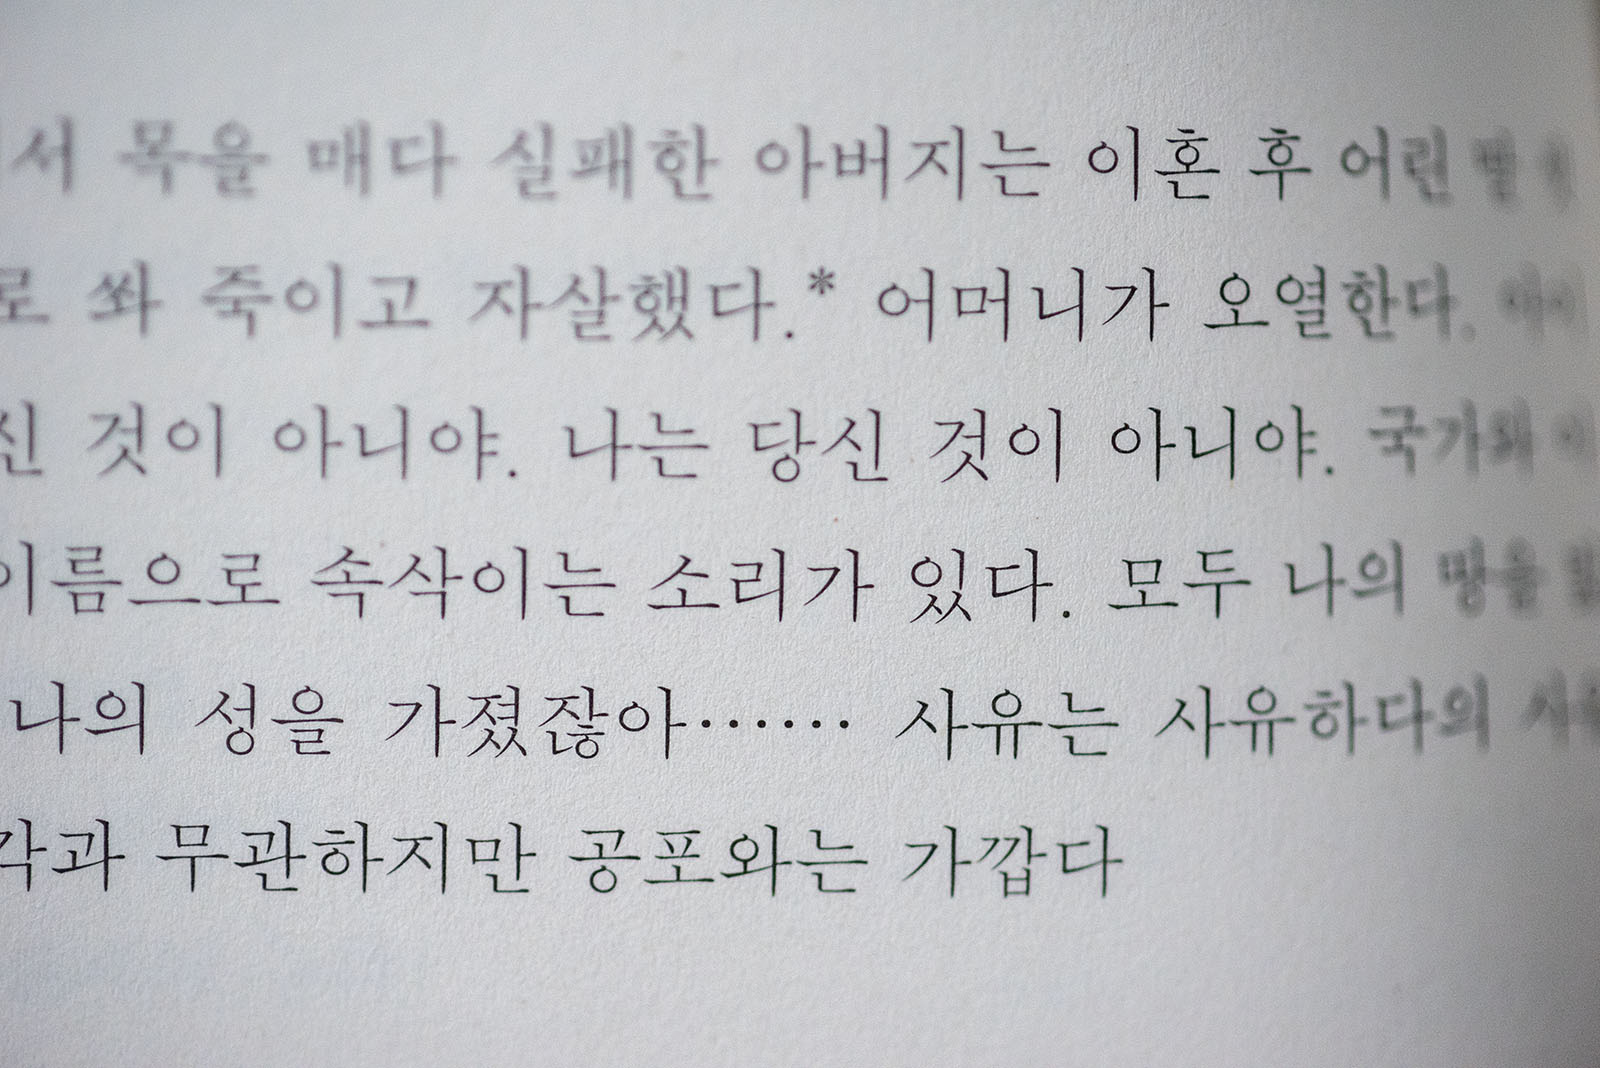 서 목을 매다 실패한 아버지는 이혼 후 어린 딸
로 쏴 죽이고 자살했다.* 어머니가 오열한다.
신 것이 아니야. 나는 당신 것이 아니야. 국가와
이름으로 속삭이는 소리가 있다. 모두 나의 땅을
나의 성을 가졌잖아…… 사유는 사유하다의
각과 무관하지만 공포와는 가깝다